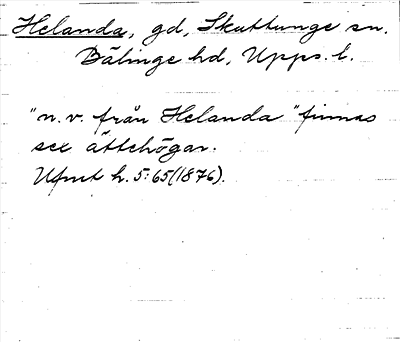 Helanda, gd, Skuttunge sn.
Bälinge hd, Upps. l.
"n. v. från Helanda" finnas
sex ättehögar.
Ufmt h. 5:65 (1876).